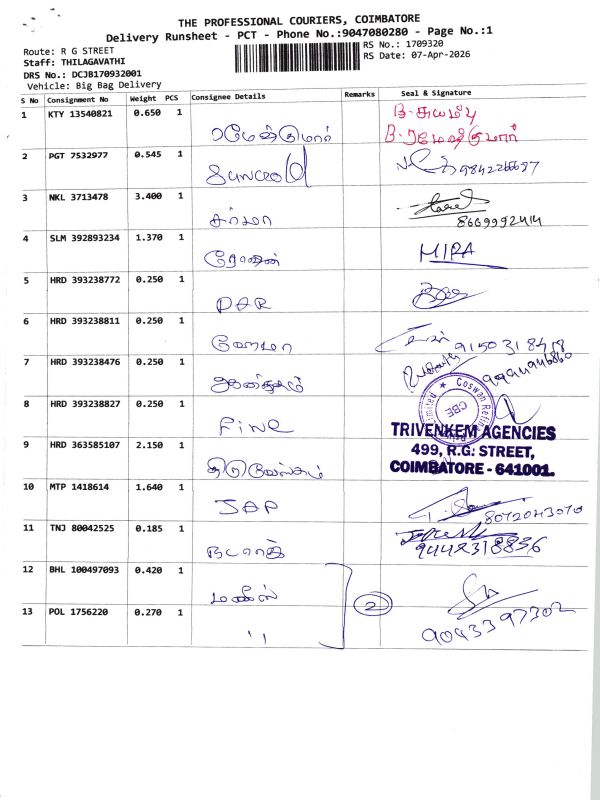 THE PROFESSIONAL COURIERS, COIMBATORE
Delivery Runsheet - PCT - Phone No.:9047080280 - Page No.:1
Route: R G STREET
RS No.: 1709320
Staff: THILAGAVATHI
RS Date: 07-Apr-2026
DRS No.: DCJB170932001
Vehicle: Big Bag Delivery
S No Consignment No Weight PCS Consignee Details Remarks Seal & Signature
1 KTY 13540821 0.650 1 ரமேஷ்குமார்
B-சுயம்பு
B-ரமேஷ்குமார்
2 PGT 7532977 0.545 1
3 NKL 3713478 3.400 1 சர்மா
8669992414
4 SLM 392893234 1.370 1 ரோஷன் MIRA
5 HRD 393238772 0.250 1 PAR
6 HRD 393238811 0.250 1 ஹேமா 9150318418
7 HRD 393238476 0.250 1
9994946860
8 HRD 393238827 0.250 1 FINE
Coswan Refin
CBE
TRIVENKEM AGENCIES
499, R.G. STREET,
COIMBATORE - 641001.
9 HRD 363585107 2.150 1 திருவேங்கடம்
10 MTP 1418614 1.640 1 JAP
11 TNJ 80042525 0.185 1 நடராஜ்
9442318836
12 BHL 100497093 0.420 1 மணீஸ்
2
13 POL 1756220 0.270 1 ''
9043397302